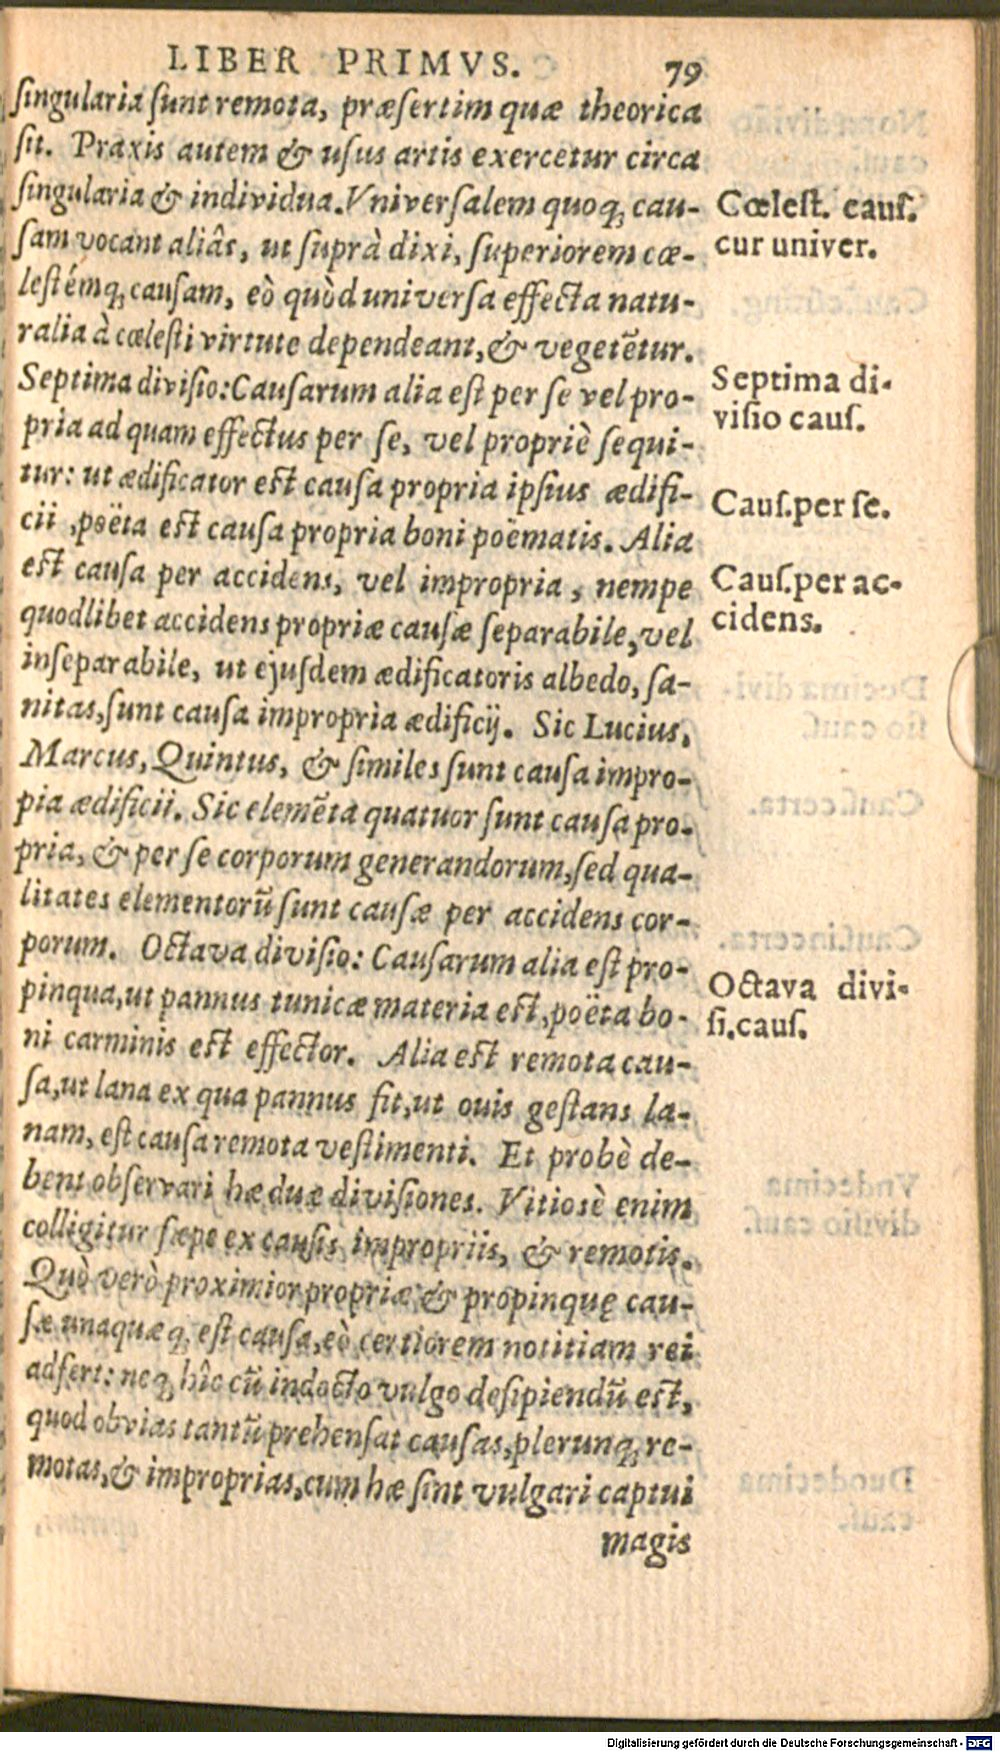 LIBER PRIMVS. 79
singularia sunt remota, præsertim quæ theorica
sit. Praxis autem & usus artis exercetur circa
singularia & individua. Vniversalem quoq, cau-
sam vocant aliâs, ut suprà dixi, superiorem cœ-
lestémq, causam, eò quòd universa effecta natu-
ralia à cœlesti virtute dependeant, & vegetẽtur.
Septima divisio: Causarum alia est per se vel pro-
pria ad quam effectus per se, vel propriè sequi-
tur: ut ædificator est causa propria ipsius ædifi-
cii, poëta est causa propria boni poëmatis. Alia
est causa per accidens, vel impropria, nempe
quodlibet accidens propriæ causæ separabile, vel
inseparabile, ut ejusdem ædificatoris albedo, sa-
nitas, sunt causa impropria ædificij. Sic Lucius,
Marcus, Quintus, & similes sunt causa impro-
pia ædificii. Sic elemẽta quatuor sunt causa pro-
pria, & per se corporum generandorum, sed qua-
litates elementorũ sunt causæ per accidens cor-
porum. Octava divisio: Causarum alia est pro-
pinqua, ut pannus tunicæ materia est, poëta bo-
ni carminis est effector. Alia est remota cau-
sa, ut lana ex qua pannus fit, ut ouis gestans la-
nam, est causa remota vestimenti. Et probè de-
bent observari hæ duæ divisiones. Vitiosè enim
colligitur sæpe ex causis impropriis, & remotis.
Quò verò proximior propriæ & propinquę cau-
sæ unaquæq, est causa, eò certiorem notitiam rei
adfert: neq, hîc cũ indocto vulgo desipiendũ est,
quod obvias tantũ prehensat causas, plerunq, re-
motas, & improprias, cum hæ sint vulgari captui
magis
Cœlest. caus.
cur univer.
Septima di-
visio caus.
Caus. per se.
Caus. per ac-
cidens.
Octava divi-
si. caus.
Digitalisierung gefördert durch die Deutsche Forschungsgemeinschaft - DFG